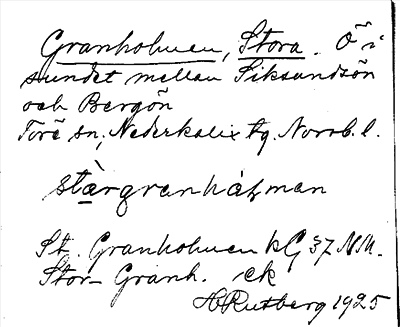 Granholmen, Stora. Ö i
sundet mellan Siksundsön
och Bergön
Töre sn, Nederkalix tg. Norrb. l.
St. Granholmen kG 37 NM.
Stor-Granh. ek
H Rutberg 1925